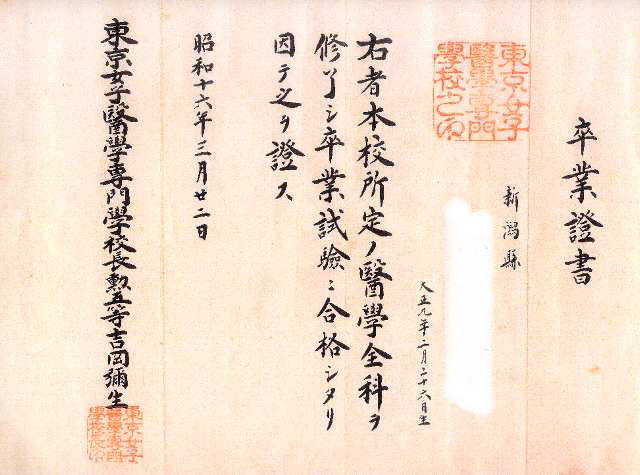 卒業證書
新潟縣
大正九年二月二十六日生
東京女子
醫學專門
學校之印
右者本校所定ノ醫學全科ヲ
修了シ卒業試驗ニ合格シタリ
因テ之ヲ證ス
昭和十六年三月廿二日
東京女子醫學専門學校長勲五等吉岡彌生
東京女子
醫學專門
學校長印